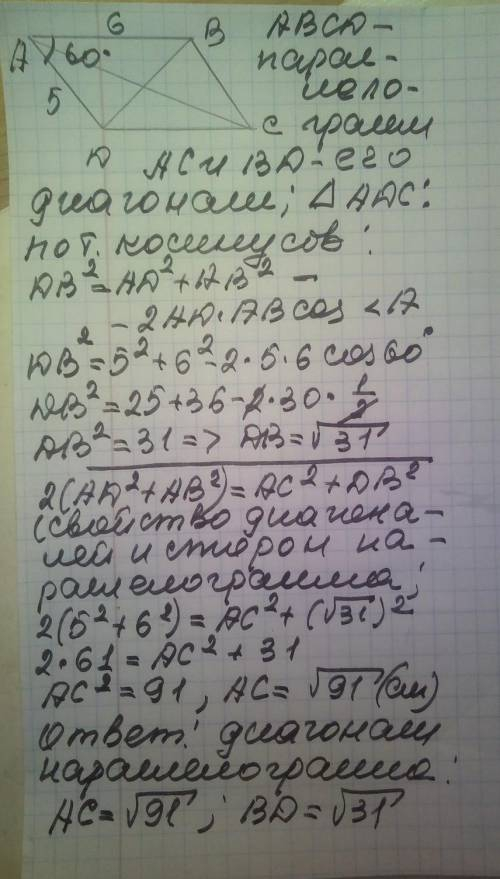 6
A 60° B ABCD-
парал-
5 лело-
D C грамм
AC и BD - его
диагонали; △ADC:
по т. косинусов:
DB² = AD² + AB² -
- 2AD·AB cos <A
DB² = 5² + 6² - 2·5·6 cos 60°
DB² = 25 + 36 - 2·30·1/2
DB² = 31 => DB = √31
2(AD² + AB²) = AC² + DB²
(свойство диагона-
лей и сторон па-
раллелограмма;
2(5² + 6²) = AC² + (√31)²
2·61 = AC² + 31
AC² = 91, AC = √91 (см)
Ответ: диагонали
параллелограмма:
AC = √91; BD = √31